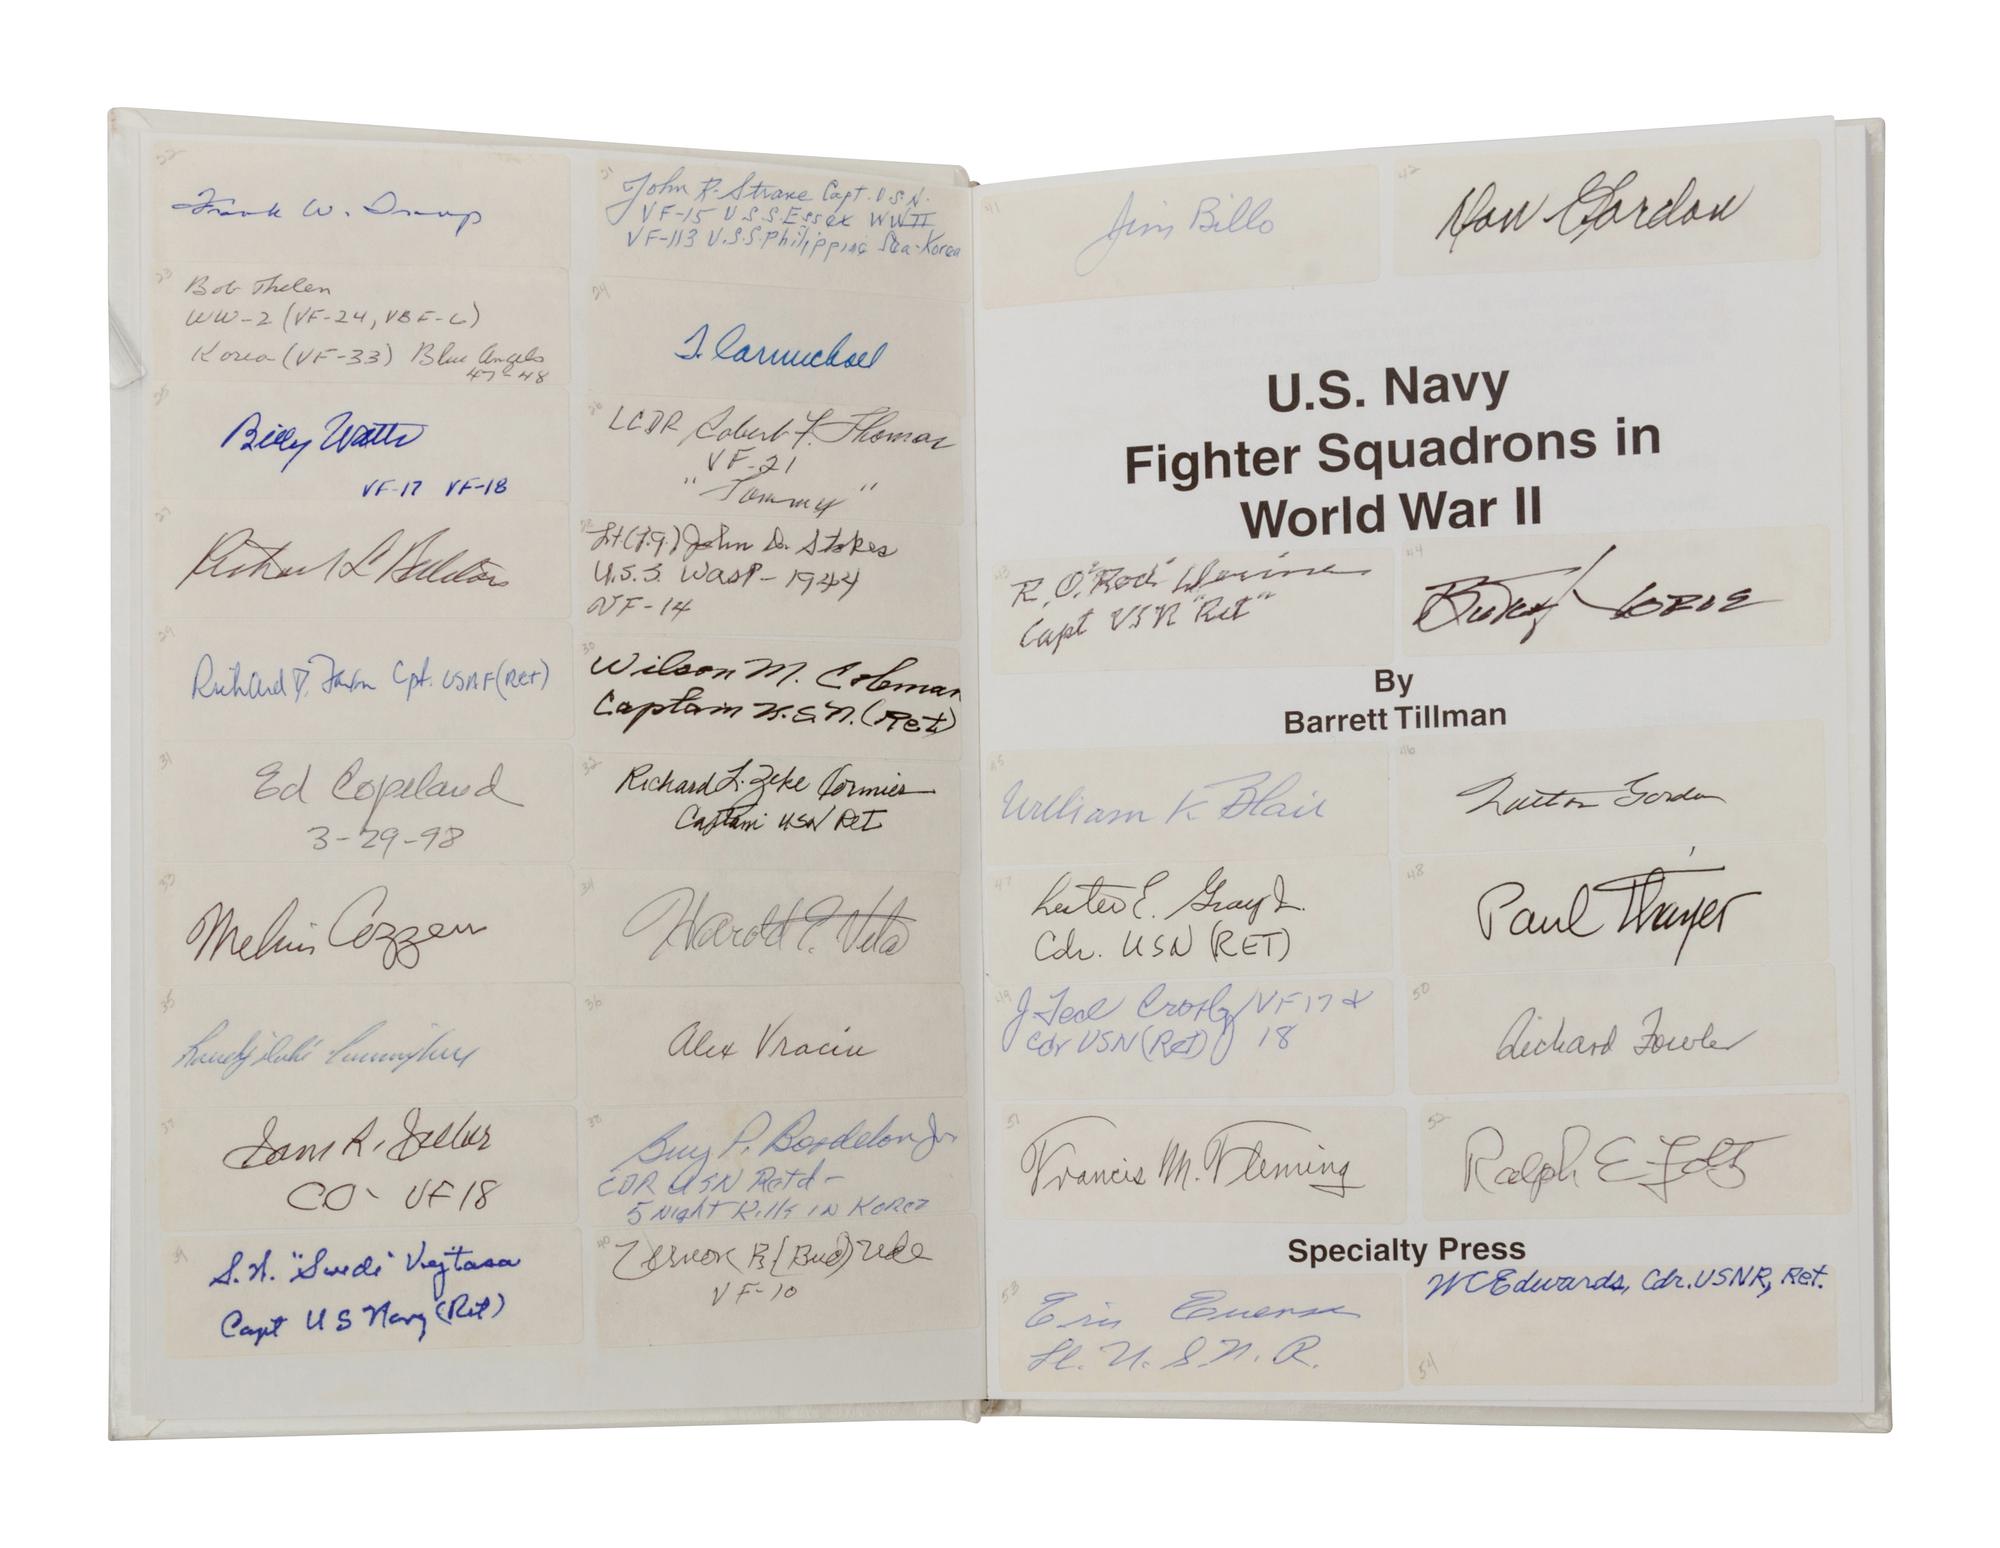 John R. Strane Capt. U.S.N.
VF-15 U.S.S. Essex WWII
VF-113 U.S.S. Philippine Sea-Korea
Bob Thelen
WW-2 (VF-24, VBF-6)
Korea (VF-33) Blue Angels
47-48
T. Carmichael
Billy Watts
VF-17 VF-18
LCDR Robert F. Thomas
VF-21
"Tommy"
Lt(J.g.) John D. Stokes
U.S.S. Wasp - 1944
VF-14
Wilson M. Coleman
Captain U.S.N. (Ret)
Ed Copeland
3-29-98
Richard L. Zeke Cormier
Captain USN Ret
Melvin Cozzens
Harold E. Vita
Alex Vraciu
CO - VF18
Guy P. Bordelon Jr.
CDR USN Retd -
5 Night Kills in Korea
S. W. "Swede" Vejtasa
Capt US Navy (Ret)
(Bud) Ude
VF-10
41
Jim Billo
42
Don Gordon
U.S. Navy
Fighter Squadrons in
World War II
R. O. "Rod" Devine
Capt USN "Ret"
44
By
Barrett Tillman
45
William K Blair
46
Gordon
47
Lester E. Gray Jr.
Cdr. USN (RET)
48
Paul Thayer
49
J Ted Crosby VF17 &
Cdr USN (Ret) 18
50
Richard Fowler
51
Francis M. Fleming
52
Ralph E Foltz
Specialty Press
53
Eric Evenson
Lt. U.S.N.R.
WCEdwards, Cdr. USNR, Ret.
54